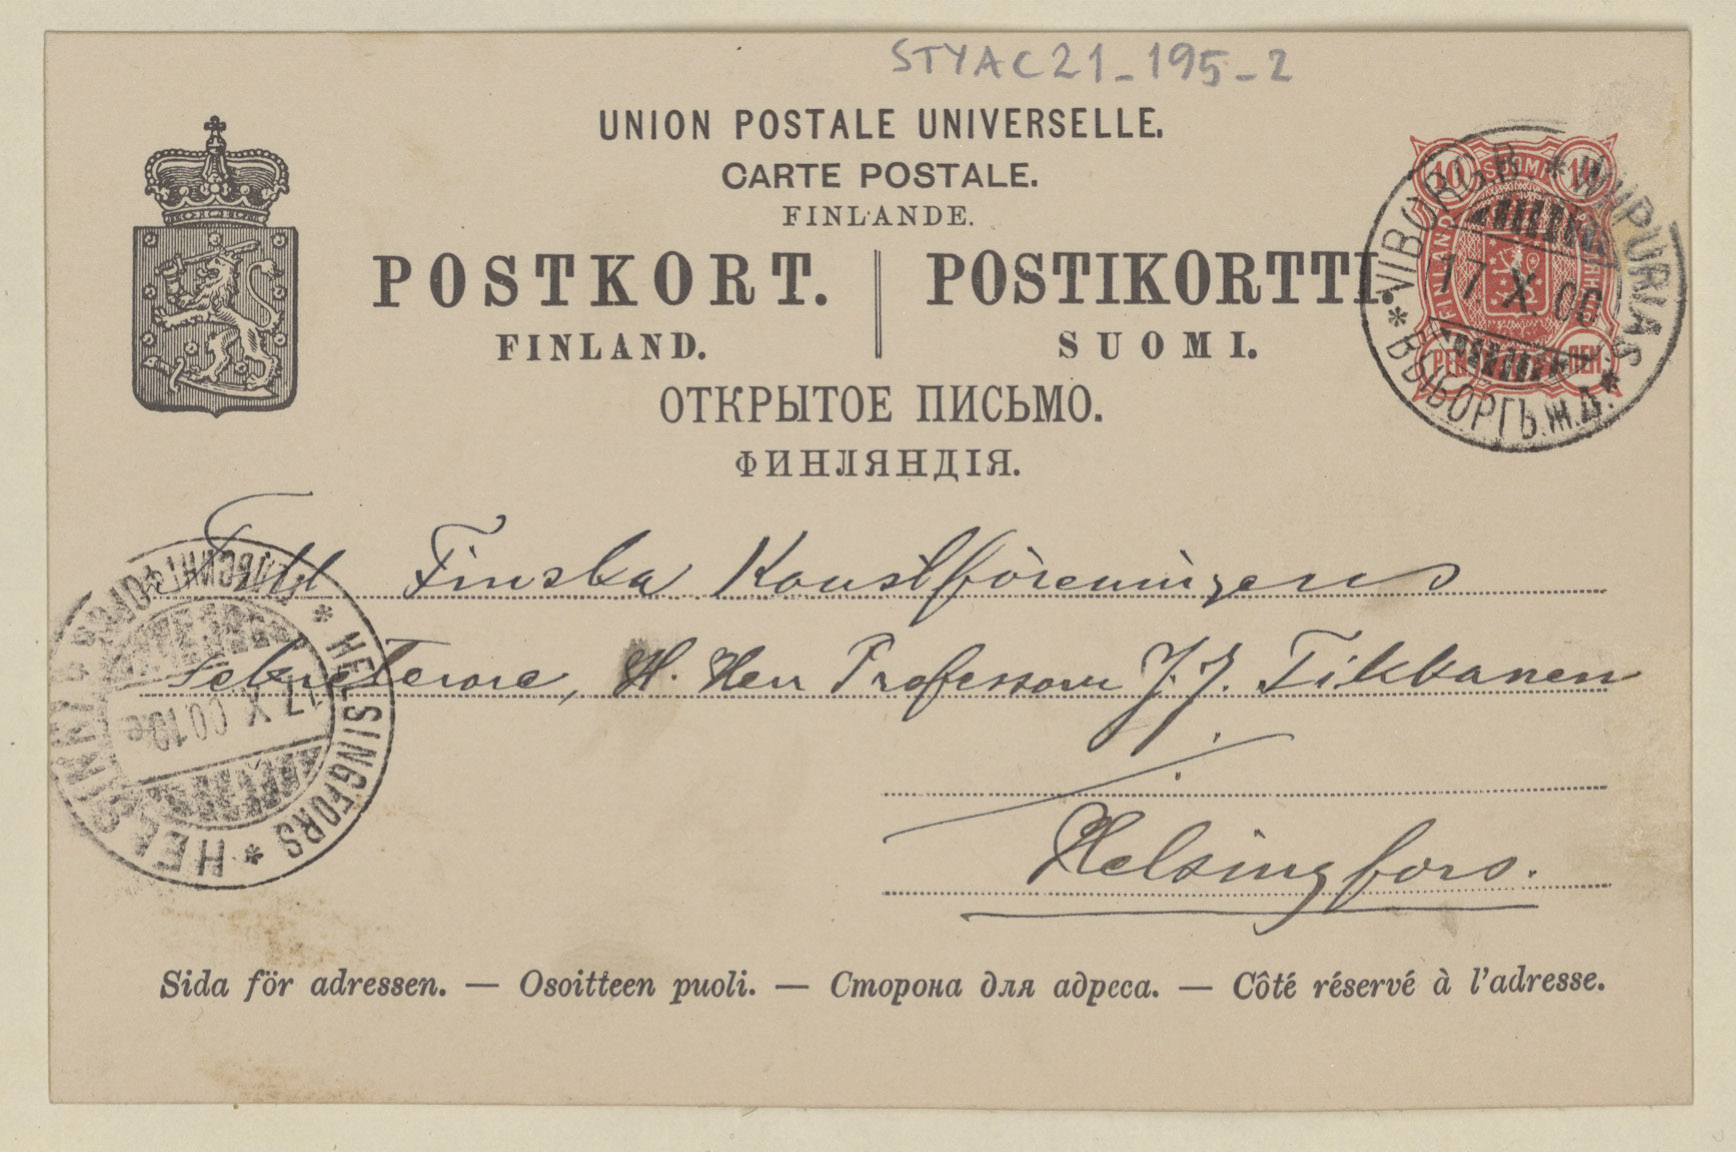 STYAC21_195_2
UNION POSTALE UNIVERSELLE.
CARTE POSTALE.
FINLANDE.
POSTKORT. | POSTIKORTTI.
FINLAND. SUOMI.
ОТКРЫТОЕ ПИСЬМО.
ФИНЛЯНДІЯ.
10 SUOMI 10
FINLAND
PEN ПЕН
VIBORG.B. * WIIPURI.A.S. * ВЫБОРГЪ.Ж.Д. *
17.X.00
Till Finska Konstföreningens
sekreterare, H. Herr Professorn J. J. Tikkanen
Helsingfors.
* HELSINGFORS * HELSINKI * ГЕЛЬСИНГФОРСЪ
17.X.00.10e
Sida för adressen. — Osoitteen puoli. — Сторона для адреса. — Côté réservé à l'adresse.